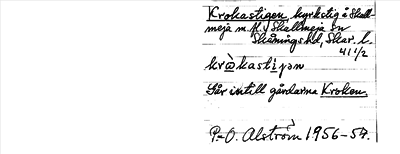 Krokastigen, kyrkstig å Skall-
meja m. fl. i Skallmeja sn
Skånings hd, Skar. l.
41 1/2
kràkastìgən
Går intill gårdarna Kroken.
P.-O. Alström 1956-57.